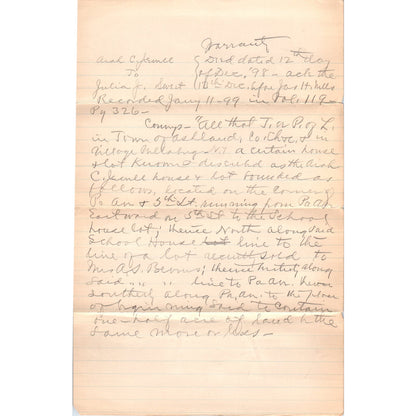 Warranty
Arah C. Jewell { Deed dated 12th day
To { of Dec. 98 - ack the
Julia J. Sweet { 16th Dec. before Jas H. Mills
Recorded Jany 11-99 in Vol. 119-
Pg 326-
Conveys - "All that T. or P. of L.
in Town of Ashland, Co. Chse, & in
Village N.Y. a certain house
& lot known & described as the Arah
C. Jewell house & lot bounded as
follows, located on the corner of
Pa Av & 5th St, running from Pa Av
Eastward on 5th St to the School
house lot; thence North along said
School House lot line to the
line of a lot sold to
Mrs A.S. ; thence West along
said " " " line to Pa Av. thence
southerly along Pa Av. to the place
of beginning said to contain
one-half acre of land be the
same more or less -